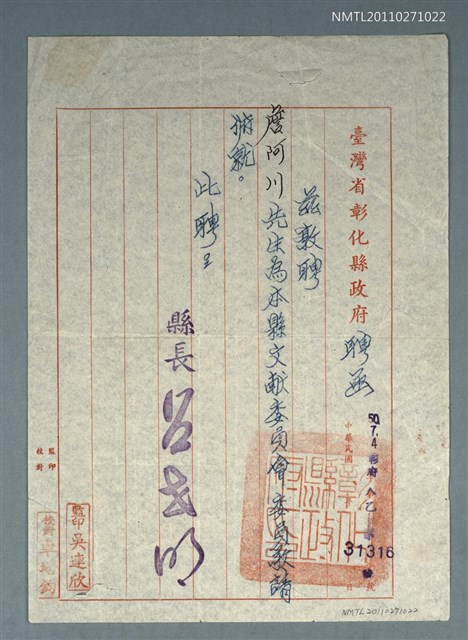 NMTL20110271022
臺灣省彰化縣政府 聘函
50.7.4 彰府 乙 31316 號
中華民國
茲敦聘
詹阿川先生為本縣文献委員會委員敬請
俯就。
此聘
縣長 呂世明
監印
校對
監印 吳達欣
NMTL20110271022